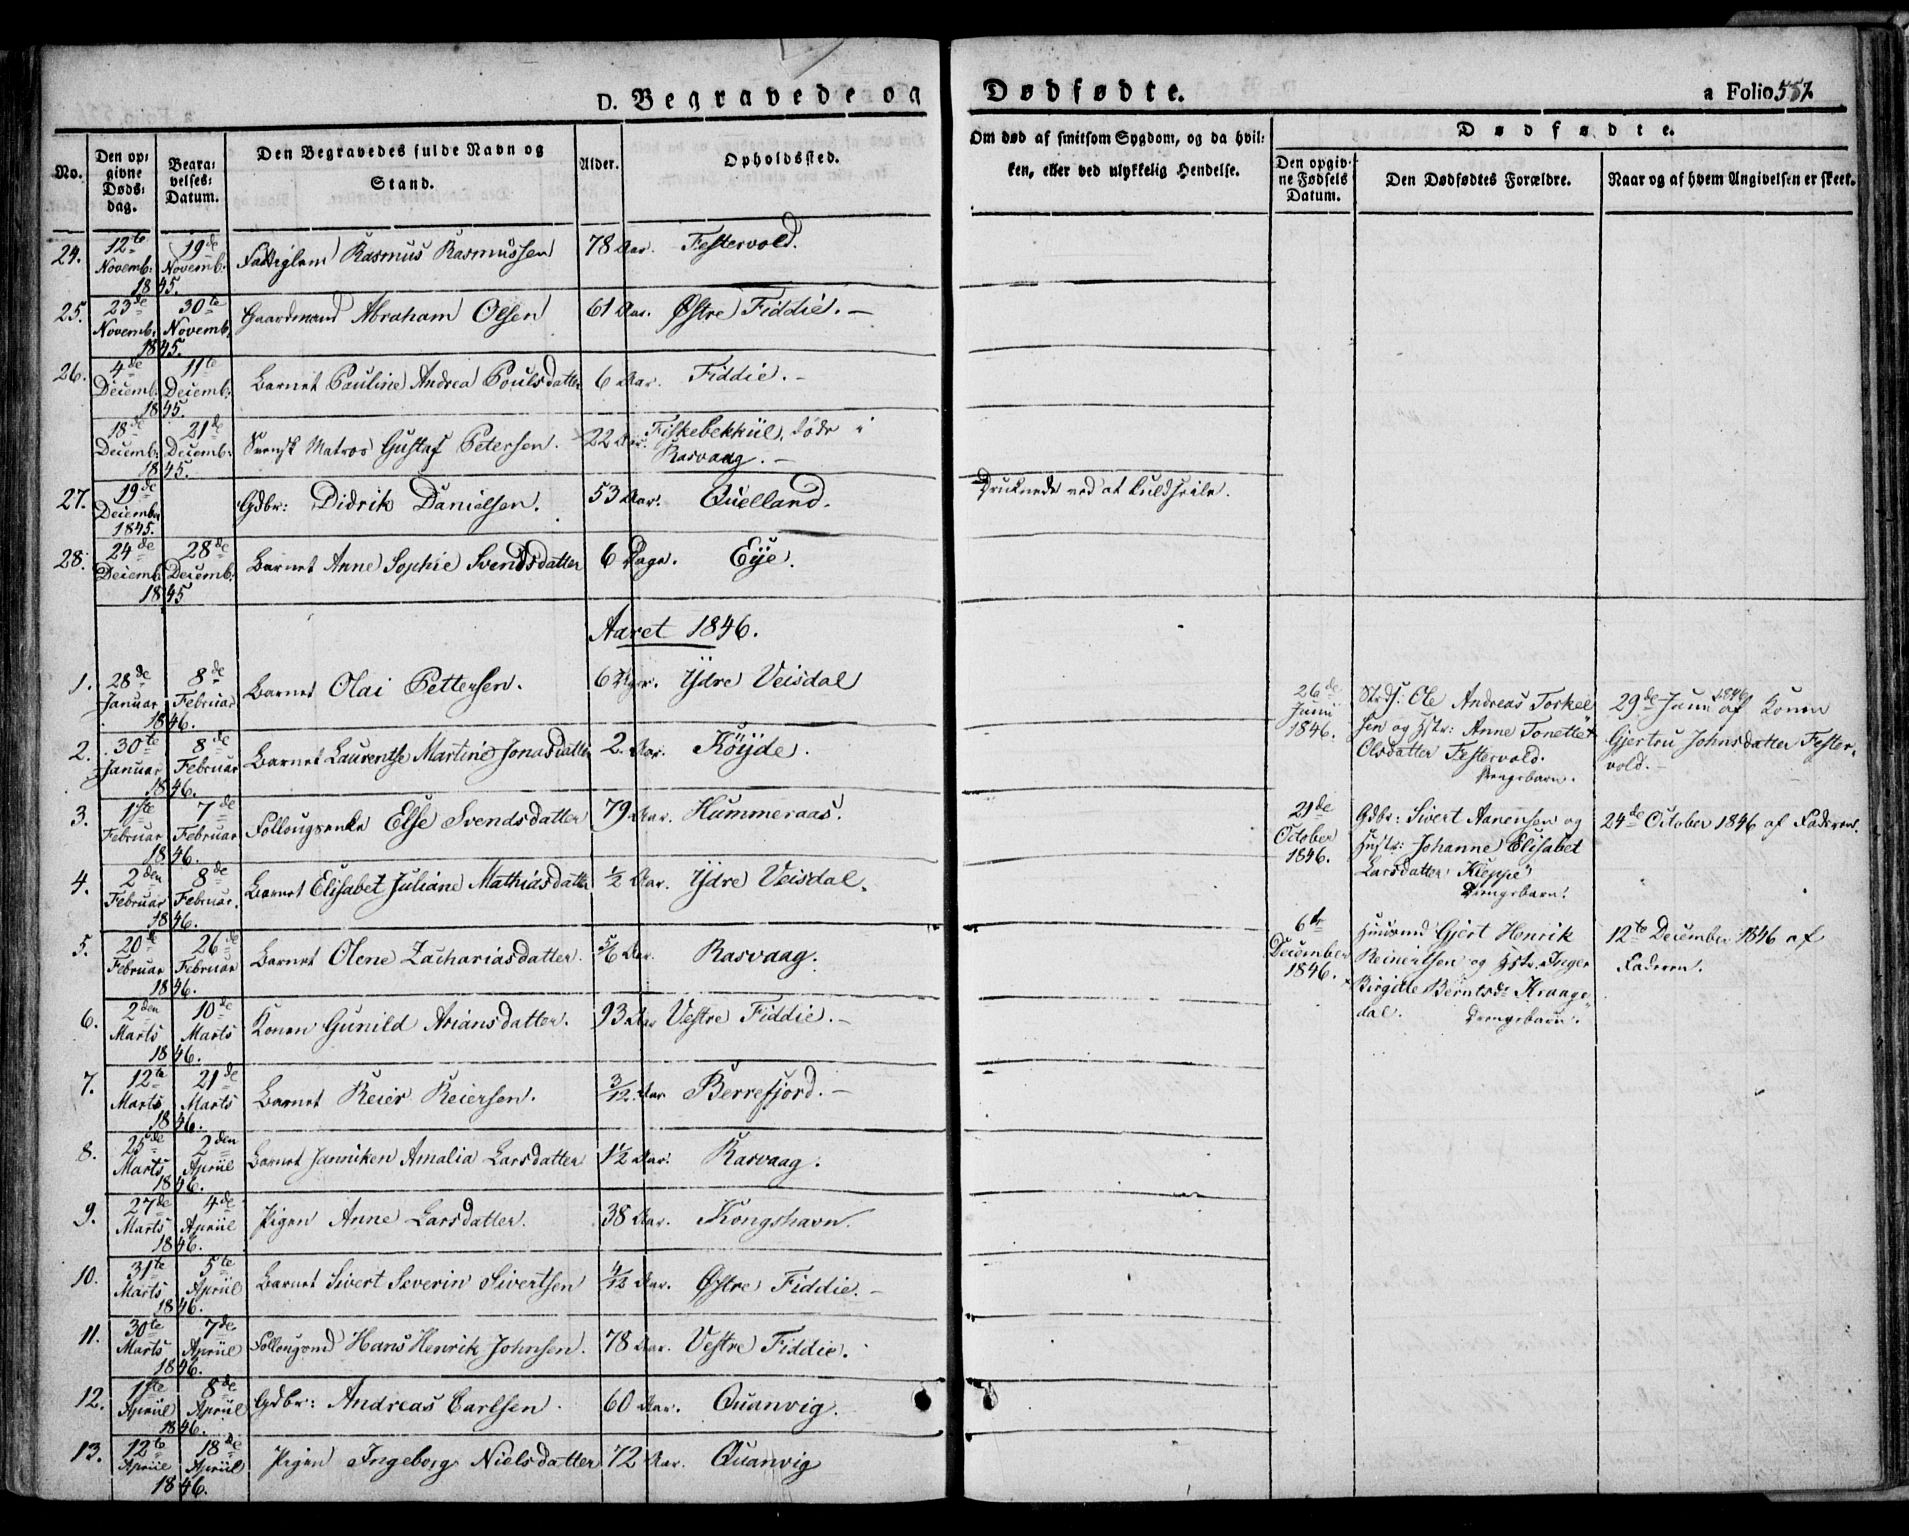 D. Begravede og Dødfødte. a Folio 557.
No.
Den opgivne Dødsdag.
Begravelses-Datum.
Den Begravedes fulde Navn og Stand.
Alder.
Opholdssted.
Om død af smitsom Sygdom, og da hvilken, eller ved ulykkelig Hendelse.
Dødfødte.
Den opgivne Fødsels Datum.
Den Dødfødtes Forældre.
Naar og af hvem Angivelsen er skeet.
24. 12te Novemb: 1845. 19de Novemb: Rasmus Rasmussen 78 Aar. Festervold.
25. 23de Novemb: 1845. 30te Novemb: Gaardmand Abraham Olsen 61 Aar. Østre Fiddie. –
26. 4de Decemb: 1845. 11te Decemb: Barnet Pauline Andrea Poulsdatter 6 Aar. Fiddie. –
18de Decemb: 1845. 21de Decemb: Svensk Matros Gustaf Petersen. 22 Aar. Fiskebekkiil, døde i
Rasvaag. –
27. 19de December 1845. Gdbr: Didrik Danielsen. 53 Aar. Quelland. Druknede ved at kuldseile.
28. 24de Decemb: 1845 28de Decemb: Barnet Anne Sophie Svendsdatter 6 Dage. Eÿe.
Aaret 1846.
1. 28de Januar 1846. 8de Februar Barnet Olai Pettersen. 6 Ÿdre Veisdal
2. 30te Januar 1846. 8de Februar Barnet Laurentse Martine Jonasdatter 2 Aar. Röÿde.
3. 1ste Februar 1846. 7de Februar Else Svendsdatter 79 Aar. Hummeraas.
4. 2den Februar 1846. 8de Februar. Barnet Elisabet Juliane Mathiasdatter ½ Aar. Ÿdre Veisdal.
5. 20de Februar 1846. 26de Februar Barnet Olene Zachariasdatter. 5/6 Aar. Rasvaag.
6. 2den Marts 1846. 10de Marts Konen Gunild Ariansdatter. 93 Aar Vestre Fiddie. –
7. 12te Marts 1846. 21de Marts Barnet Reier Reiersen. 3/12 Aar Berrefjord. –
8. 25de Marts 1846. 2den Apriil Barnet Janniken Amalia Larsdatter 1½ Aar. Rasvaag.
9. 27de Marts 1846. 4de Apriil Pigen Anne Larsdatter. 38 Aar. Kongshavn.
10. 31te Marts 1846. 5te Apriil Barnet Sivert Severin Sivertsen 4/12 Aar. Østre Fiddie. –
11. 30te Marts 1846. 7de Apriil Hans Henrik Johnsen. 78 Aar. Vestre Fiddie.
12. 1ste Apriil 1846. 8de Apriil Gdbr: Andreas Carlsen. 60 Aar. Quanvig.
13. 12te Apriil 1846. 18de Apriil Pigen Ingeborg Nielsdatter 72 Aar. Quanvig
26de Junii 1846. Strds: Ole Andreas Torkel
sen og Hstr: Anne Tonette
Olsdatter Festervold.
Drengebarn.
29de Junii 1846 af Konen
Gjertru Johnsdatter Fester-
vold. –
21de October 1846. Gdbr: Sivert Aanensen og
Hustr: Johanne Elisabet
Larsdatter Kleppe
Drengebarn.
24de October 1846 af Faderen.
6te December 1846. Huusmd Gjert Henrik
Reinertsen og Hstr. Inger
Birgitte Berntsdr Kraage-
dal. Drengebarn.
12te December 1846 af
Faderen.